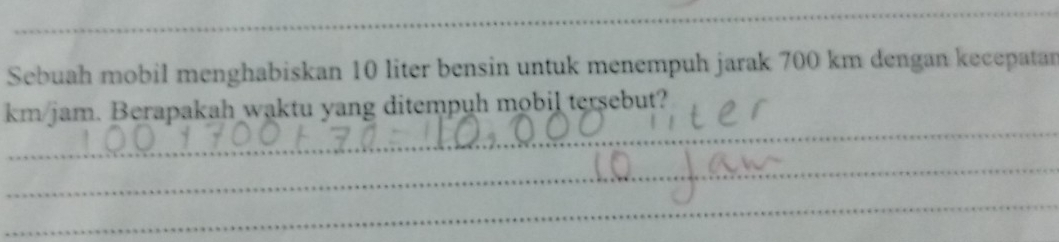 Sebuah mobil menghabiskan 10 liter bensin untuk menempuh jarak 700 km dengan kecepatan
km/jam. Berapakah waktu yang ditempuh mobil tersebut?
100 + 700 + 70 = 10,000 liter
10 Jam